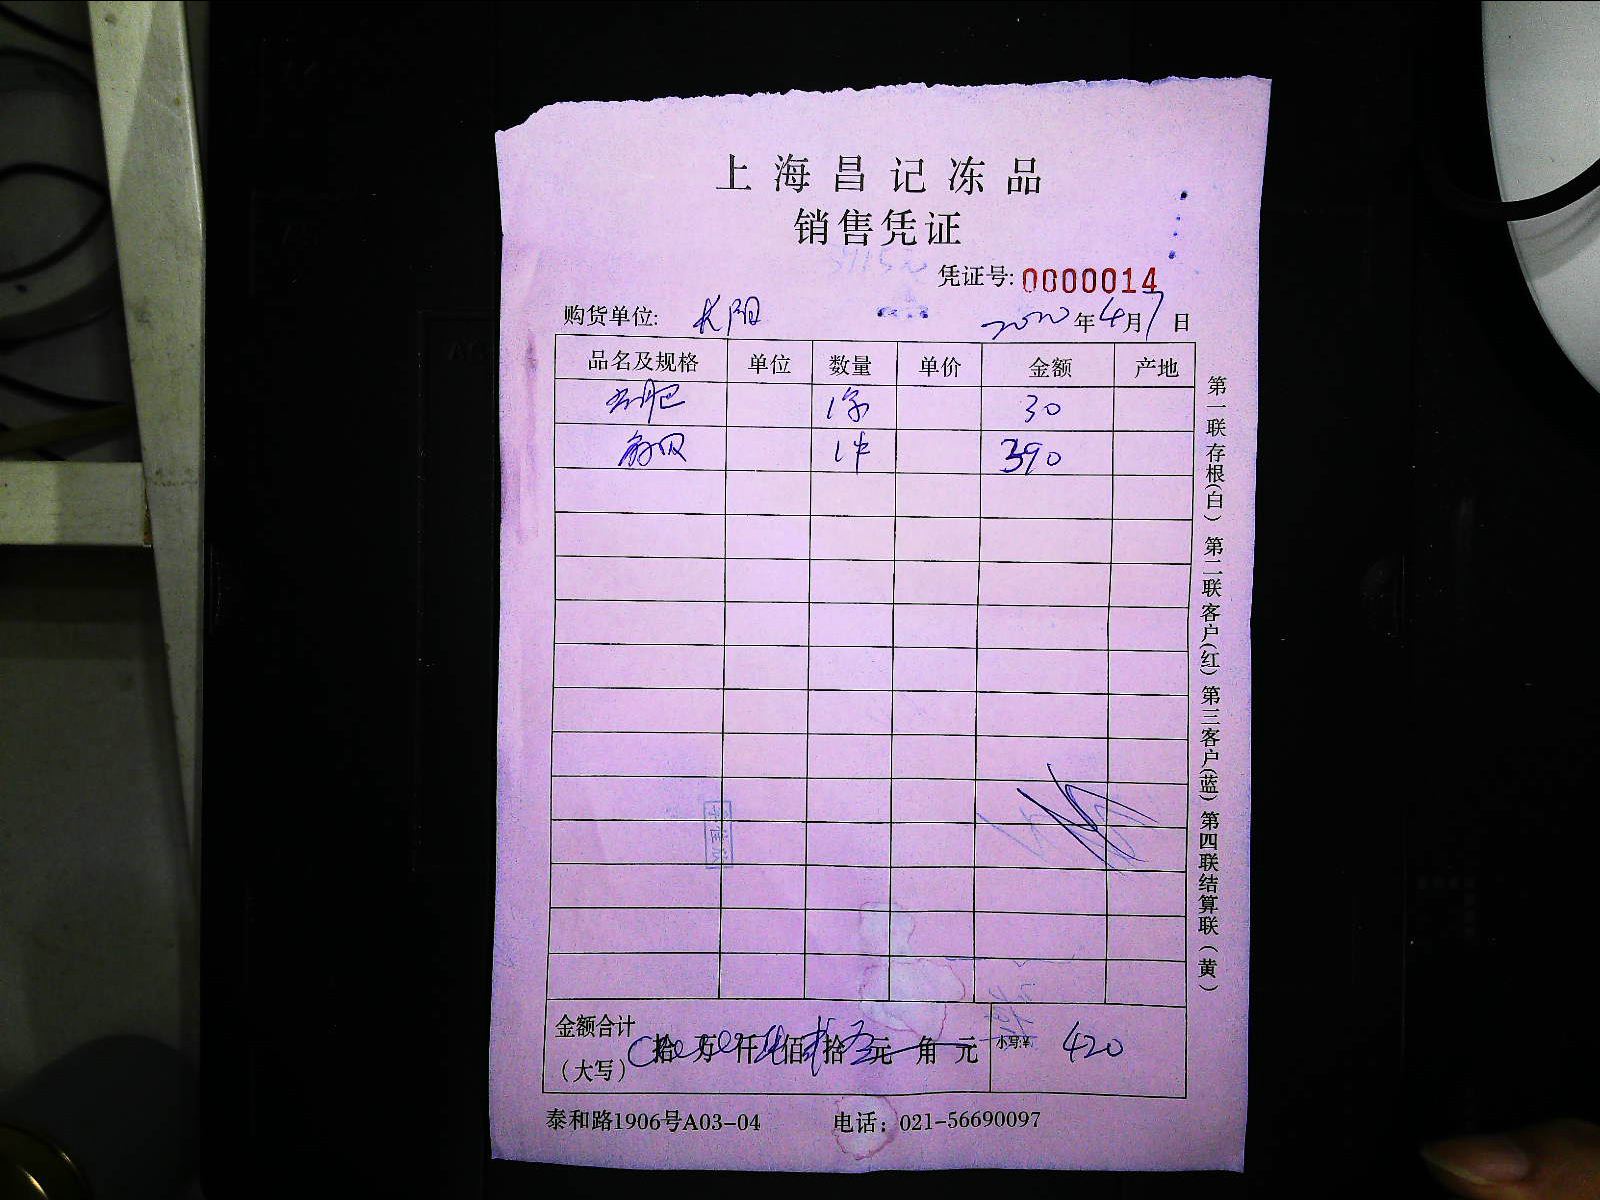 上海昌记冻品
销售凭证
凭证号: 0000014
购货单位: 长阳 2020年4月7日
品名及规格 单位 数量 单价 金额 产地
1 30
1件 390
金额合计(大写) 拾 万 仟 佰 拾 元 角 元 小写:¥ 420
泰和路1906号A03-04 电话: 021-56690097
第一联存根(白) 第二联客户(红) 第三客户(蓝) 第四联结算联(黄)